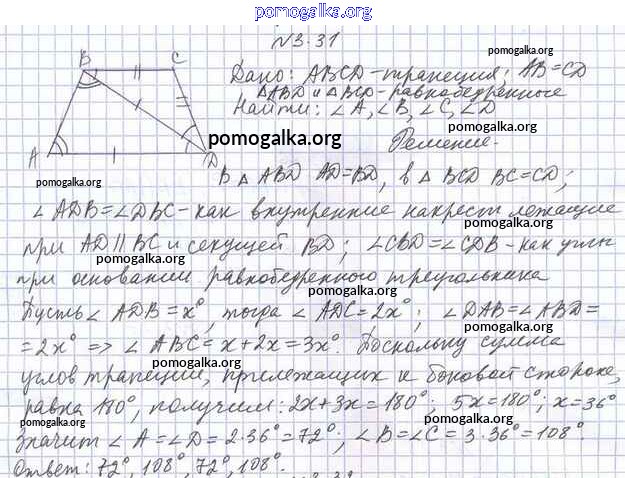 pomogalka.org
N3.31
pomogalka.org
B C
Дано: ABCD-трапеция; AB=CD
△ABD и △BCD-равнобедренные
Найти: ∠A, ∠B, ∠C, ∠D
pomogalka.org
Решение.
pomogalka.org
A D
В △ ABD AD=BD, в △ BCD BC=CD;
pomogalka.org
pomogalka.org
∠ADB=∠DBC-как внутренние накрест лежащие
при AD∥BC и секущей BD; ∠CBD=∠CDB-как углы
pomogalka.org
pomogalka.org
при основании равнобедренного треугольника
pomogalka.org
Пусть ∠ADB=x°, тогда ∠ADC=2x°; ∠DAB=∠ABD=
pomogalka.org
=2x° => ∠ABC=x+2x=3x°. Поскольку сумма
pomogalka.org
углов трапеции, прилежащих к боковой стороне,
pomogalka.org
равна 180°, получим: 2x+3x=180°; 5x=180°; x=36°
pomogalka.org
Значит ∠A=∠D=2·36°=72°; ∠B=∠C=3·36°=108°.
pomogalka.org
Ответ: 72°, 108°, 72°, 108°.